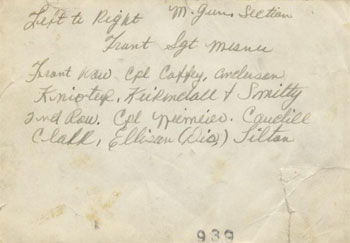 Left to Right M. Gun. Section
Front Sgt Misner
Front Row Cpl Coffey, Anderson
Knioter, Kuikendall & Smitty
2nd Row. Cpl Niemeier. Caudill
Clark, Ellison (Dio,) Tilton
939